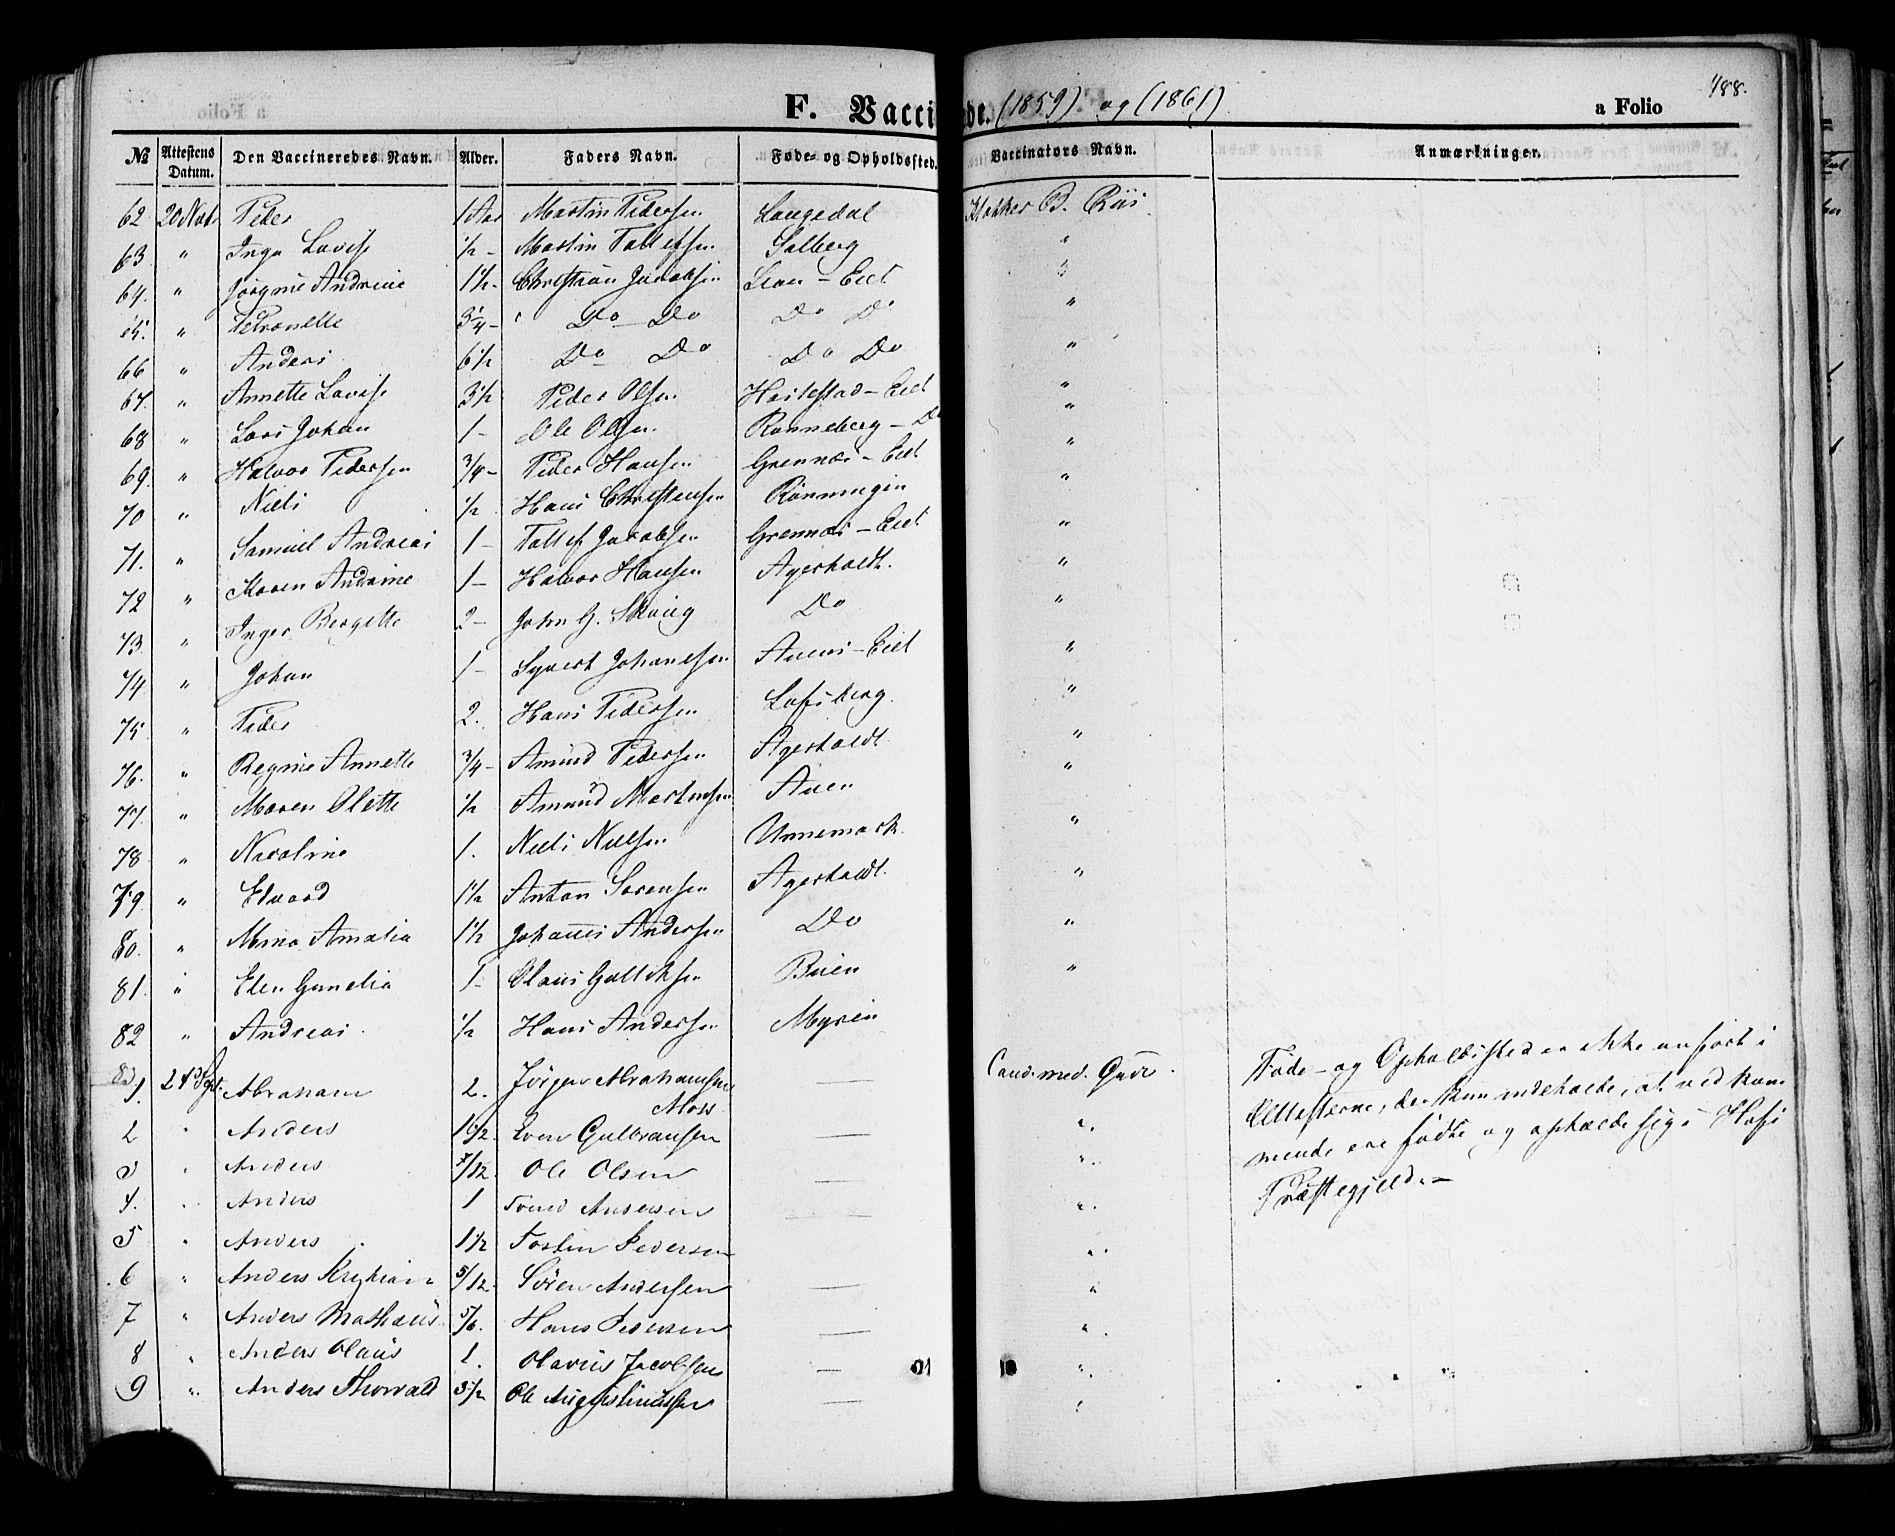 F. Vaccinerede. (1859) og (1861) a Folio 188.
№ Attestens Datum. Den Vaccineredes Navn. Alder. Faders Navn. Føde- og Opholdssted. Vaccinators Navn. Anmærkninger.
62 20 Novbr Peder 1 Aar Martin Pedersen Langedal Klokker B. Riis
63. " Inga Lovise 1/2 - Martin Tallefsen Solberg "
64. " Jørgine Andrine 1 1/2 - Christian Jacobsen - Eiet "
65. " Petronelle 3 1/4 - " Do - Do Do Do "
66 " Anders 6 1/2 Do - Do Do Do "
67. " Annette Lovise 3 1/2 Peder Olsen - Eiet "
68 " Lars Johan 1 - Ole Olsen. Ranneberg - Do "
69. " Halvor Pedersen 3/4 - Peder Hansen Grennæs - Eiet "
70 " Niels 1/2 Hans Christensen Rønningen "
71. " Samuel Andreas 1 - Tallef Jacobsen Grennæs - Eiet "
72 " Maren Andrine 1 - Halvor Hansen Agerholdt. "
73. " Inger Bergette 2 - John G. Skoug Do "
74 " Johan 1 - Syvert Johannesen - Eiet "
75 " Peder 2. Hans Pedersen Lofsberg. "
76. " Regine Annette 3/4 - Amund Pedersen Agerholdt "
77. " Maren Olette 1/2 Amund Martinsen Aven "
78 " Nicoline 1. Niels Nielsen Unnemark. "
79. " Edvard 1 1/2 Anton Sørensen Agerholdt. "
80. " Mina Amalia 1 1/2 Johannes Andersen Do "
81. " Elen Gunelia 1 - Olaus Gulliksen Buen "
82 " Andreas. 1/2 Hans Andersen Myren "
1. 24 Sept. Abraham 2. Jörgen Abrahamsen Moss — Cand. med. Føde- og Opholdssted er ikke anført i
2 " Anders Gulbransen — " Attesterne, der kun indeholde, at vedkom-
3 " Anders 7/12. Ole Olsen — " mende ere fødte og opholde sig i
4. " Anders 1 Andersen — " Præstegjeld. -
5 " Anders. 1 1/2 Pedersen — "
6 " Anders Kristian 5/12. Sören Andersen — "
7 " Anders Mathæus 5/6. Hans Pedersen — "
8 " Anders Olaus 1. Olavus Jacobsen — "
9 " Anders Thorvald Ole Augustinussen — "